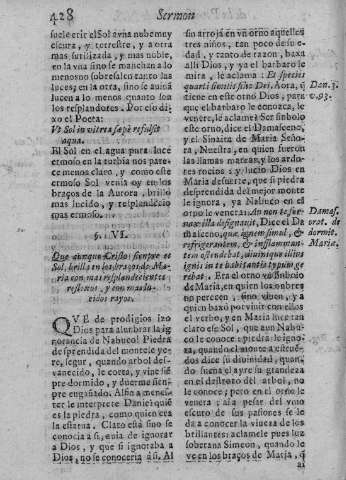 428 Sermon
suele erir el Sol a vna nube muy
escura, y terrestre, y a otra
mas sutilizada, y mas noble,
en la vna sino se manchan a lo
menos no sobresalen tanto las
luces; en la otra, sino se aviuā
lucen a lo menos quanto son
los resplandores. Por esso di-
xo el Poeta:
Vt Sol in vitrea sæpè refulsit
aqua.
El Sol en el agua pura luce
ermoso en la turbia nos pare-
ce menos claro, como este er-
moso Sol venía oy en los
braços de la Aurora, brilló
mas lucido, y resplandeció
mas ermoso.
§. VI.
Que aunque Cristo es siempre es
Sol, brilla en los braços de Ma-
ria con mas resplandecientes
restexos, y con mas lu-
cidos rayos.
QVE de prodigios izo
Dios para alumbrar la ig-
norancia de Nabuco! Piedra
desprendida del monte ye-
re, segur, quando arbol des-
vanecido, le corta, y vine siē
pre dormido, y duerme siem-
pre engañado. Assi a menes-
ter le interprete Daniel quié
es la piedra, como quien era
la estatua. Claro està sino se
conocia à si, enia de ignorar
a Dios, y que si ignoraba a
Dios, no se conoceria a si. Al
sin arroja en vn orno aquellos
tres niños, tan poco de su e-
dad, y tanto de razon, baxa
alli Dios, y ya el barbaro le
mira, le aclama: Et species
quarti similis filio Dei. Aora, q̄
tiene en este orno Dios, para
que el barbaro le conozca, le
venere, le aclame? Ser simbolo
este orno, dice el Damasceno,
y el Sinaita de Maria Seño-
ra, Nuestra, en quien fueron
las llamas mares, y los ardo-
res rocios: y lucio Dios en
Maria de suerte, que si piedra
desprendida del mejor monte
le ignora, ya Nabuco en el
orno le venera: An non te for-
nax illa designauit, Dice el Da
masceno, quæ ignem simul, &
refrigerantem, & inflamman-
tem ostendebat, diuinique illius
ignis in te habitantis typum ge
rebat. Era el orno vn simbolo
de Maria, en quien los onbres
no perecen, sino viuen, y a
quien baxò por viuir con ellos
el verbo, y en Maria luce tan
claro esse Sol, que aun Nabu-
co le conoce: piedra le igno-
ra, quando el monte a estruē-
dos dice su diuinidad, quan-
do suena el ayre su grandeza
en el destrozo del arbol, no
le conoce; pero en el orno le
venera; y assi pesar del vmo
escuro de sus pasiones se le dà
a conocer la viueza de los
brillantes: aclamele pues lu
soberana Simeon, quando le
ve en los braços de Maria, q̄
al
Dan. 3.
v. 93.
Damas.
orat. de
dormit.
Maria.